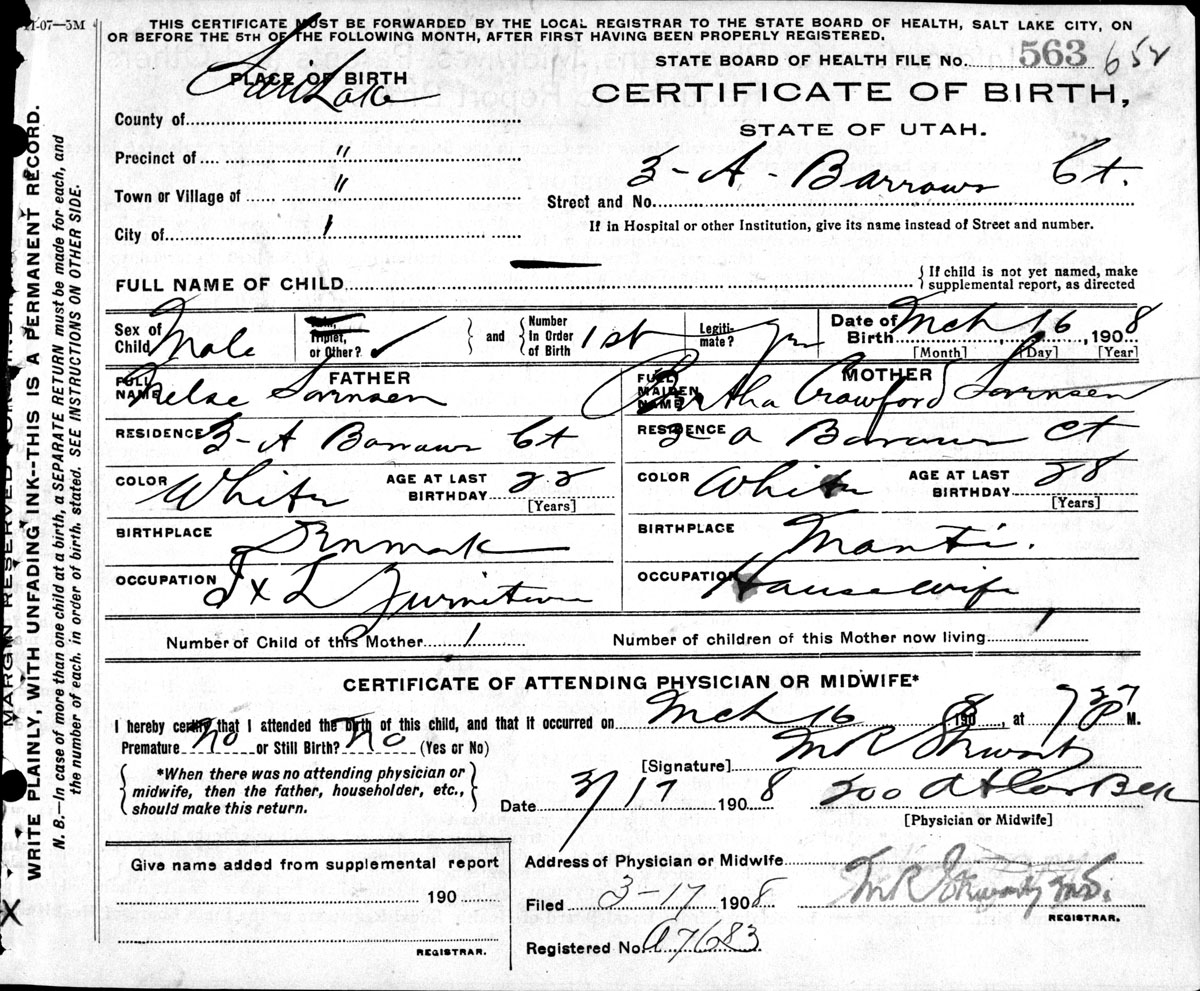 11-07—3M
THIS CERTIFICATE MUST BE FORWARDED BY THE LOCAL REGISTRAR TO THE STATE BOARD OF HEALTH, SALT LAKE CITY, ON
OR BEFORE THE 5TH OF THE FOLLOWING MONTH, AFTER FIRST HAVING BEEN PROPERLY REGISTERED.
STATE BOARD OF HEALTH FILE No. 563 652
PLACE OF BIRTH
Lake
CERTIFICATE OF BIRTH,
STATE OF UTAH.
County of
Precinct of "
Town or Village of "
City of
3-A-Barrows Ct.
Street and No.
If in Hospital or other Institution, give its name instead of Street and number.
FULL NAME OF CHILD —
{ If child is not yet named, make
supplemental report, as directed
Sex of Child Male
Twin, Triplet, or Other? ✓ } and { Number In Order of Birth 1st
Legitimate?
Date of Birth Mch 16, 1908
[Month] [Day] [Year]
FATHER
FULL NAME Nelse Sornsen
MOTHER
FULL MAIDEN NAME Bertha Crawford Sornsen
RESIDENCE 3-A Barrows Ct
RESIDENCE 3-a Barrows Ct
COLOR White AGE AT LAST BIRTHDAY 22 [Years]
COLOR White AGE AT LAST BIRTHDAY 28 [Years]
BIRTHPLACE Denmak
BIRTHPLACE Manti.
OCCUPATION I x L Furniture
OCCUPATION Housewife
Number of Child of this Mother 1
Number of children of this Mother now living 1
CERTIFICATE OF ATTENDING PHYSICIAN OR MIDWIFE*
I hereby certify that I attended the birth of this child, and that it occurred on Mch 16 1908, at 7 P M.
Premature No or Still Birth? No (Yes or No)
[Signature] M R
{ *When there was no attending physician or
midwife, then the father, householder, etc.,
should make this return. }
Date 3/17 1908
200
[Physician or Midwife]
Give name added from supplemental report
190
REGISTRAR.
Address of Physician or Midwife
Filed 3-17 1908
M R M.D.
REGISTRAR.
Registered No. a7683
MARGIN RESERVED FOR BINDING
WRITE PLAINLY, WITH UNFADING INK--THIS IS A PERMANENT RECORD.
N. B.—In case of more than one child at a birth, a SEPARATE RETURN must be made for each, and
the number of each, in order of birth, stated. SEE INSTRUCTIONS ON OTHER SIDE.
X